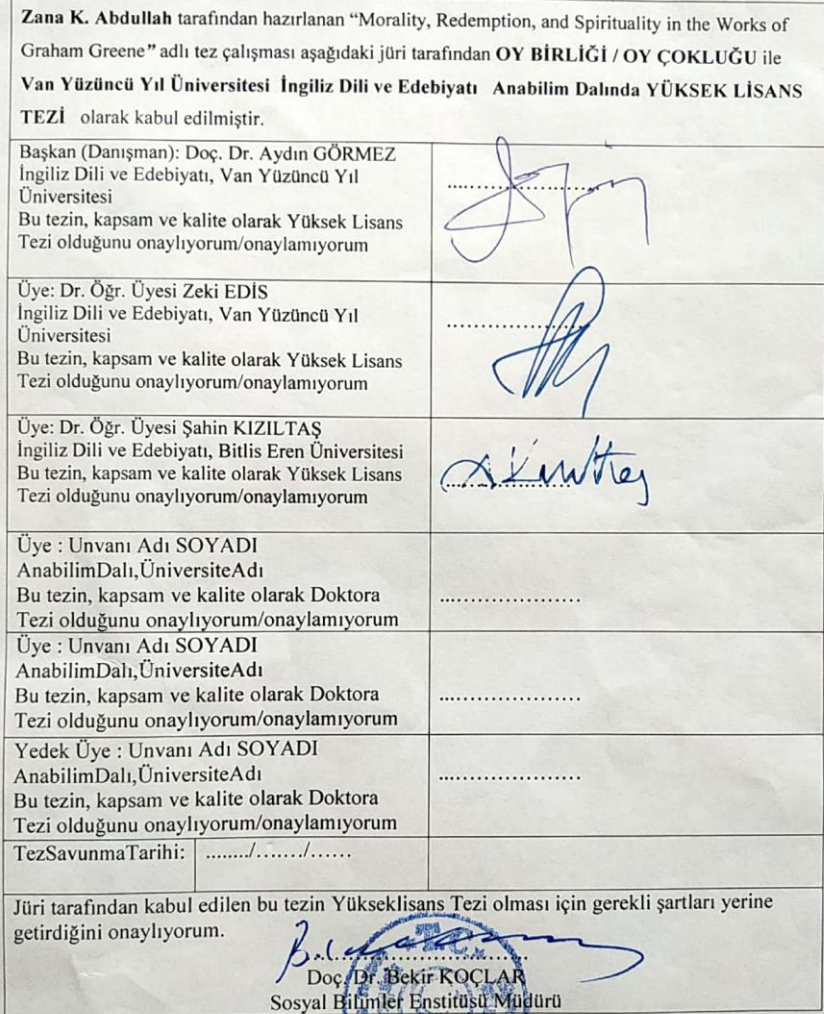 Zana K. Abdullah tarafından hazırlanan “Morality, Redemption, and Spirituality in the Works of
Graham Greene” adlı tez çalışması aşağıdaki jüri tarafından OY BİRLİĞİ / OY ÇOKLUĞU ile
Van Yüzüncü Yıl Üniversitesi İngiliz Dili ve Edebiyatı Anabilim Dalında YÜKSEK LİSANS
TEZİ olarak kabul edilmiştir.
Başkan (Danışman): Doç. Dr. Aydın GÖRMEZ
İngiliz Dili ve Edebiyatı, Van Yüzüncü Yıl
Üniversitesi
Bu tezin, kapsam ve kalite olarak Yüksek Lisans
Tezi olduğunu onaylıyorum/onaylamıyorum
.....................
Üye: Dr. Öğr. Üyesi Zeki EDİS
İngiliz Dili ve Edebiyatı, Van Yüzüncü Yıl
Üniversitesi
Bu tezin, kapsam ve kalite olarak Yüksek Lisans
Tezi olduğunu onaylıyorum/onaylamıyorum
.....................
Üye: Dr. Öğr. Üyesi Şahin KIZILTAŞ
İngiliz Dili ve Edebiyatı, Bitlis Eren Üniversitesi
Bu tezin, kapsam ve kalite olarak Yüksek Lisans
Tezi olduğunu onaylıyorum/onaylamıyorum
.....................
Üye : Unvanı Adı SOYADI
AnabilimDalı,ÜniversiteAdı
Bu tezin, kapsam ve kalite olarak Doktora
Tezi olduğunu onaylıyorum/onaylamıyorum
.....................
Üye : Unvanı Adı SOYADI
AnabilimDalı,ÜniversiteAdı
Bu tezin, kapsam ve kalite olarak Doktora
Tezi olduğunu onaylıyorum/onaylamıyorum
.....................
Yedek Üye : Unvanı Adı SOYADI
AnabilimDalı,ÜniversiteAdı
Bu tezin, kapsam ve kalite olarak Doktora
Tezi olduğunu onaylıyorum/onaylamıyorum
.....................
TezSavunmaTarihi: ......../......./......
Jüri tarafından kabul edilen bu tezin Yükseklisans Tezi olması için gerekli şartları yerine
getirdiğini onaylıyorum.
T.C.
Doç. Dr. Bekir KOÇLAR
Sosyal Bilimler Enstitüsü Müdürü